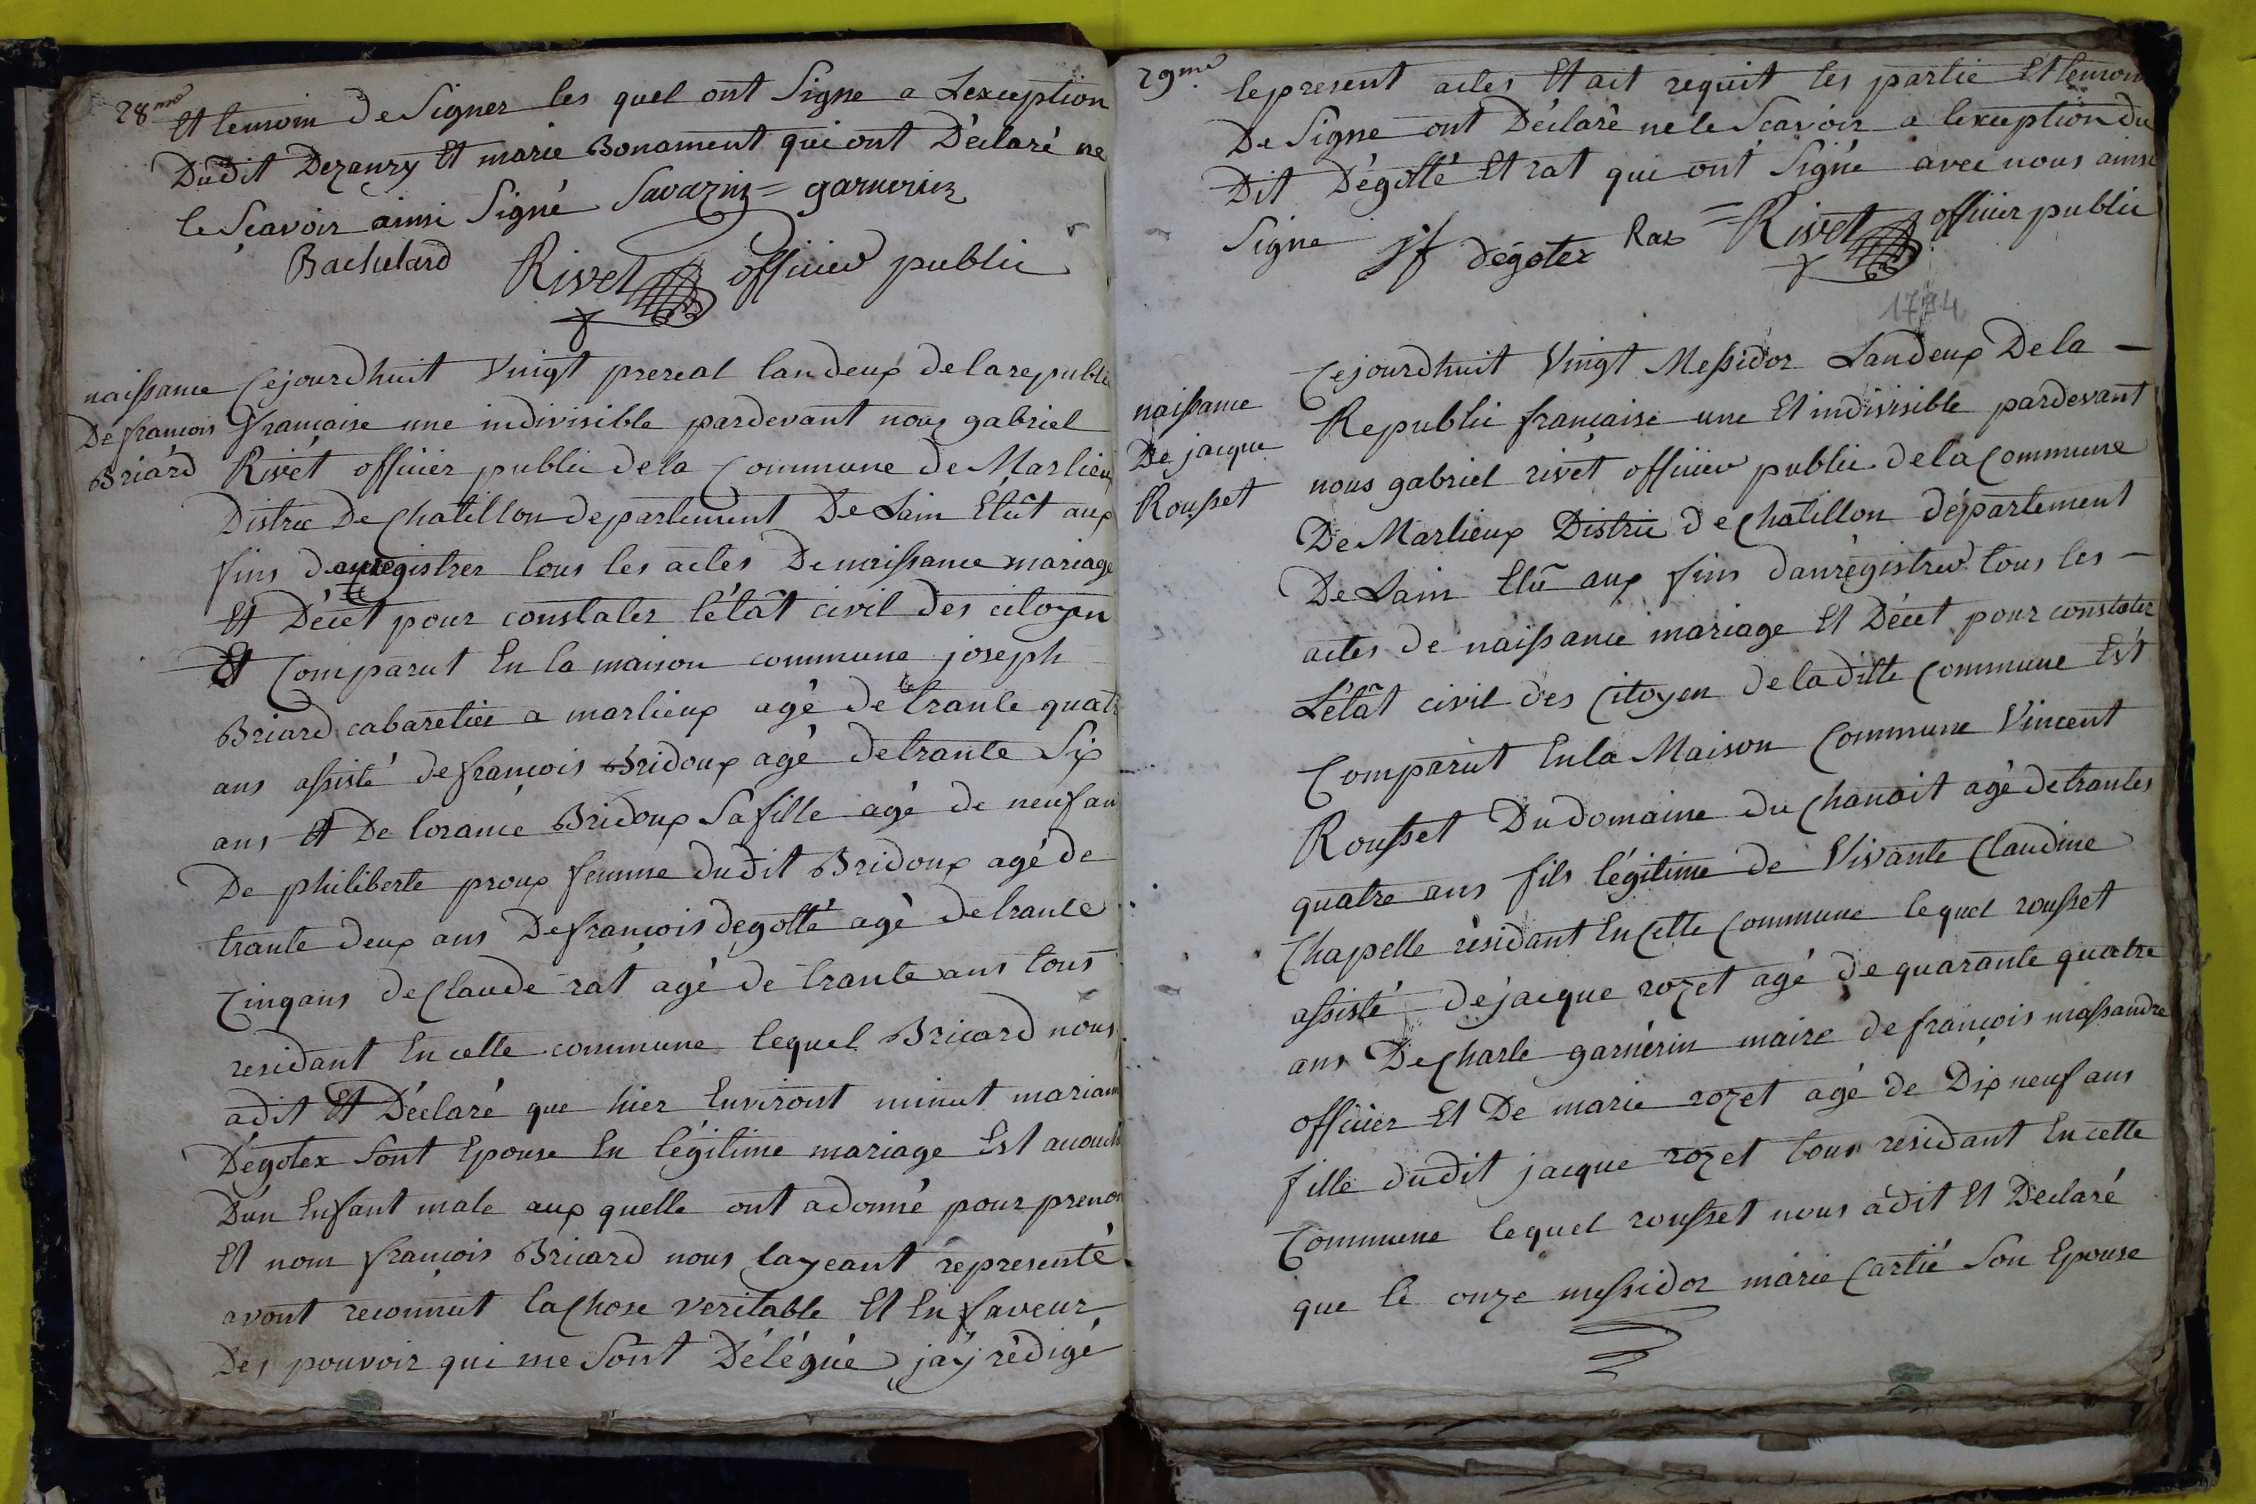 28me
Et temoin de Signer les quel ont Signe a Lexception
Dudit Dezanzy Et marie Bonament qui ont Déclaré ne
le Scavoir ainsi Signé Savazin = garnerin
Bachelard Rivet officier public
naissance
De francois
Briard
Cejourdhuit Vingt prereal landeux de la republi
francaise une indivisible pardevant nous gabriel
Rivet officier public dela Commune de Marlieux
Distric De Chatillon departement De Lain Elût aux
fins denregistrer tous les actes De naissance mariage
Et Décet pour constater l'état civil des citoyen
Et Comparut En la maison commune joseph
Briard cabaretiée a marlieux agé de trante quatr
ans assisté de francois Bridoux agé de trante Six
ans Et De lorance Bridoux Sa fille agé de neuf an
De philiberte proux femme dudit Bridoux agé de
trante deux ans De francois degotté agé de trante
Cinq ans de Claude rat agé de trante ans tous
residant En cette commune lequel Bricard nous
adit Et Déclaré que hier Environt minut mariann
Dégotex Sont Epouse En légitime mariage Est acouch
D'un Enfant male aux quelle ont adonné pour prenon
Et nom francois Bricard nous layeant représenté
avont reconnut la Chose veritable Et En faveur
Des pouvoir qui me Sont Délégué jáy rédigé
29me.
le present actes Et ait requit les partie Et temoin
De Signe ont Déclaré ne le Scavoir a lexception du
Dit Dégotté Et rat qui ont Signé avec nous ainsi
Signe jf dégotex Rat = Rivet officier public
1794
naissance
De jacque
Rousset
Cejourdhuit Vingt Messidor Landeux De la
Republic francaise une Et indivisible pardevant
nous gabriel rivet officier public dela Commune
De Marlieux Distric de Chatillon département
De Lain Elû aux fins danrégistrer tous les
actes de naissance mariage Et Décet pour constater
L'état civil des Citoyen de la ditte Commune Est
Comparut En la Maison Commune Vincent
Rousset Du domaine du Chanoit agé de trantes
quatre ans fils légitime de Vivante Claudine
Chapelle résidant En Cette Commune lequel rousset
assisté de jacque rozet agé de quarante quatre
ans De Charle garnérin maire de francois massandre
officier Et De marie rozet agé de Dix neuf ans
fille dudit jacque rozet tous residant En cette
Commune lequel rousset nous adit Et Declaré
que le onze messidor marie Cartié Son Epouse